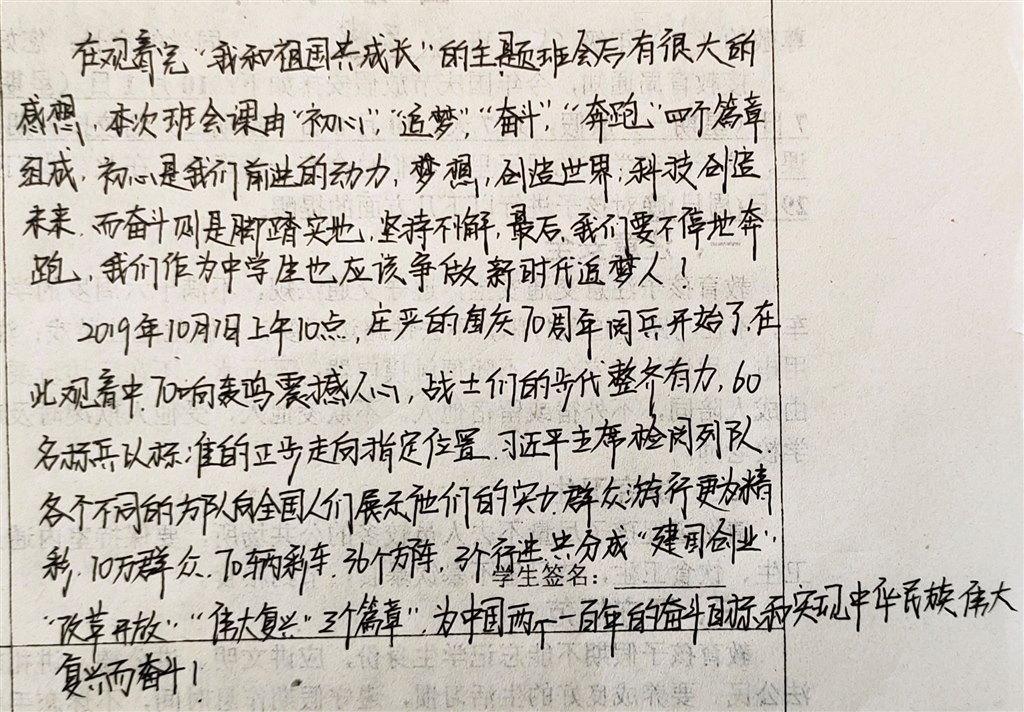 在观看完“我和祖国共成长”的主题班会后有很大的
感想，本次班会课由“初心”，“追梦”，“奋斗”，“奔跑”四个篇章
组成，初心是我们前进的动力，梦想，创造世界；科技创造
未来，而奋斗则是脚踏实地，坚持不懈，最后，我们要不停地奔
跑，我们作为中学生也应该争做新时代追梦人！
2019年10月1日上午10点，庄严的国庆70周年阅兵开始了，在
此观看中，70响轰鸣震撼人心，战士们的步伐整齐有力，60
名标兵以标准的正步走向指定位置，习近平主席检阅列队，
各个不同的方队向全国人们展示他们的实力，群众游行更为精
彩，10万群众，70辆彩车，36个方阵，3个行进，共分成“建国创业”，
学生签名：
“改革开放”，“伟大复兴”三个篇章”，为中国两个一百年的奋斗目标和实现中华民族伟大
复兴而奋斗！